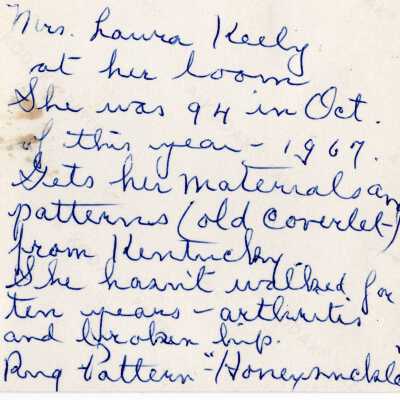 Mrs. Laura Keely
at her loom
She was 94 in Oct.
of this year - 1967.
Gets her materials an
patterns (old coverlet)
from Kentucky.
She hasn't walked for
ten years - arthritis
and broken hip.
Rug Pattern - "Honeysuckle"